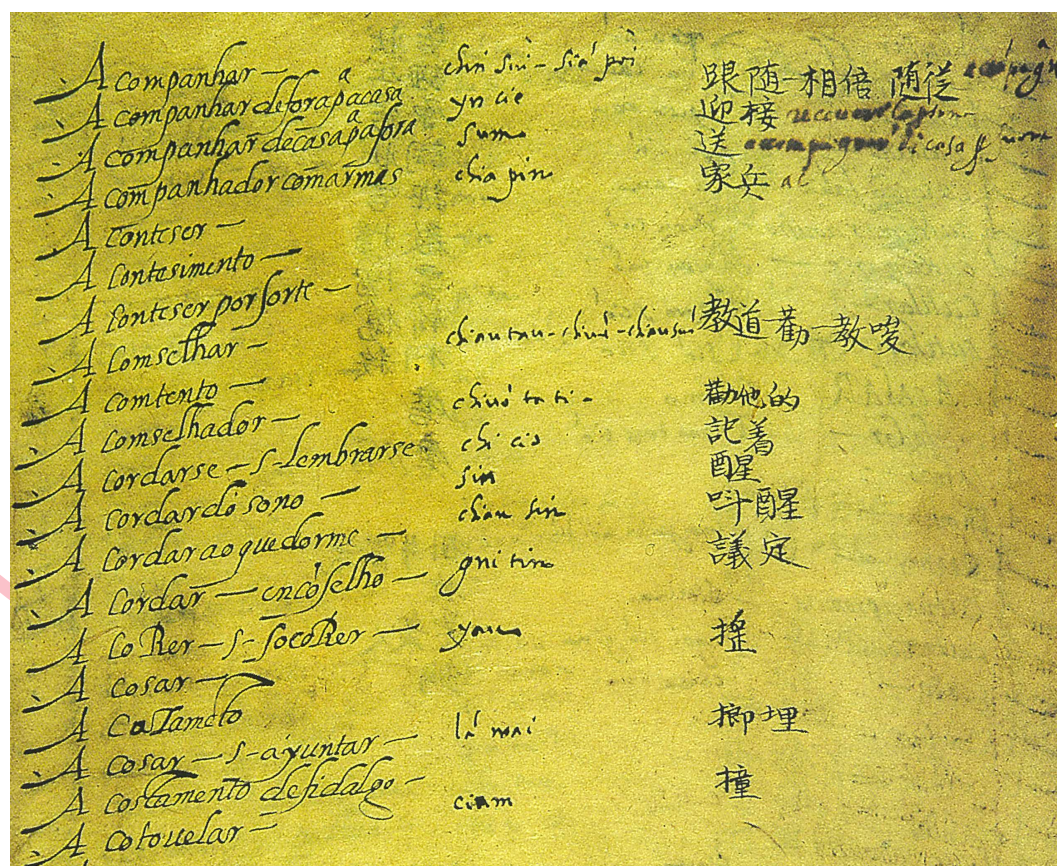 Acompanhar — chin siu - siá poi 跟随 - 相倍 随從
Acompanhar de fora pª casa yn cie 迎接
Acompanhar de casa pª fora sum 送
Acompanhador com armas chia pin 家兵 al
Aconteser —
Acontesimento —
Aconteser por sorte —
Acomselhar — chiau tau - chiuè - chiau sui 教道 勸 - 教唆
Acomtento —
Acomselhador — chiuò ta ti - 勸他的
Acordarse - s - lembrarse - chi cio 記着
Acordar dó sono — sin 醒
Acordar ao que dorme — chiau sin 呌醒
Acordar — en cõselho — gni tin 議定
AcoRer — s - socoRer — yau 搖
Acosar —
Acasamẽto
Acosar — s - ayuntar — lá mai 挷埋
Acostamento de fidalgo -
Acotouelar — ciam 撞